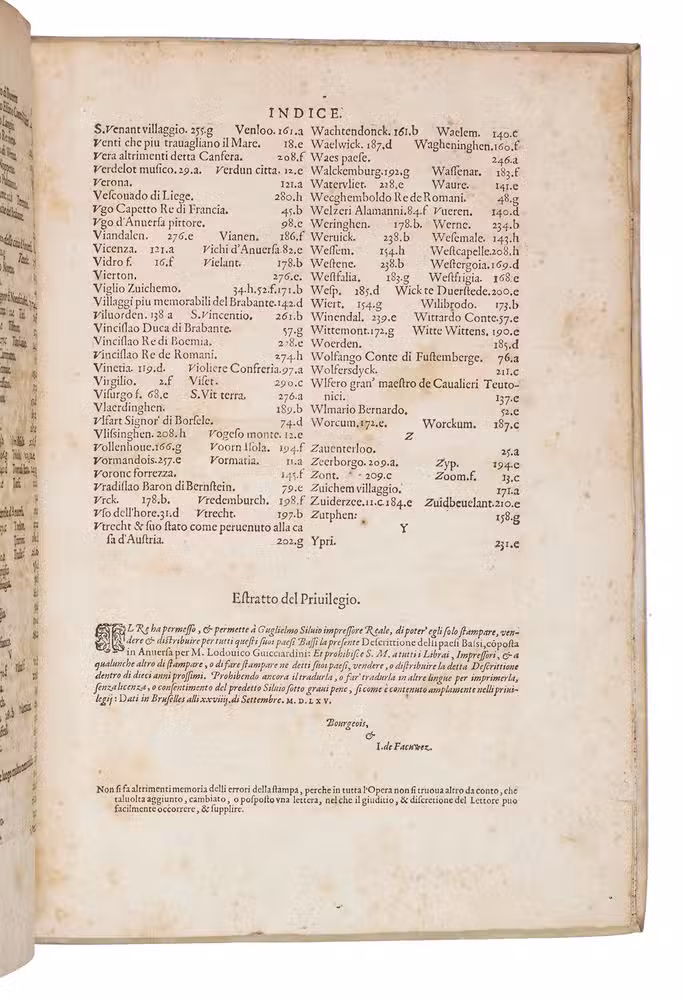 INDICE.
S.Venant villaggio. 255.g Venloo. 161.a
Venti che piu trauagliano il Mare. 18.e
Vera altrimenti detta Canfera. 208.f
Verdelot musico. 29.a. Verdun citta. 12.e
Verona. 121.a
Veſcouado di Liege. 280.h
Vgo Capetto Re di Francia. 45.b
Vgo d'Anuerſa pittore. 98.e
Viandalen. 276.e Vianen. 186.f
Vicenza. 121.a Vichi d'Anuerſa. 82.e
Vidro f. 16.f Vielant. 178.b
Vierton. 276.e.
Viglio Zuichemo. 34.h.52.f.171.b
Villaggi piu memorabili del Brabante. 142.d
Viluorden. 138 a S.Vincentio. 261.b
Vinciſlao Duca di Brabante. 57.g
Vinciſlao Re di Boemia.
Vinciſlao Re de Romani. 274.h
Vinetia. 119.d. Violiere Confreria. 97.a
Virgilio. 2.f Viſet. 290.c
Viſurgo f. 68.e S.Vit terra. 276.a
Vlaerdinghen. 189.b
Vlfart Signor' di Borſele. 74.d
Vliſinghen. 208.h Vogeſo monte. 12.e
Vollenhoue. 166.g Voorn Iſola. 194.f
Vormandois. 257.e Vormatia. 11.a
Voronc forrezza. 145.f
Vradiſlao Baron di Bernſtein. 79.e
Vrck. 178.b. Vredemburch. 198.f
Vſo dell'hore. 31.d Vtrecht. 197.b
Vtrecht & ſuo ſtato come peruenuto alla ca
ſa d'Auſtria. 202.g
Wachtendonck. 161.b Waelem. 140.e
Waelwick. 187.d Wagheninghen. 160.f
Waes paeſe. 246.a
Walckemburg. 192.g Waſſenar. 183.f
Watervliet. 228.e Waure. 141.e
Wecghemboldo Re de Romani. 48.g
Welzeri Alamanni. 84.f Vueren. 140.d
Weringhen. 178.b. Werne. 234.b
Weruick. 238.b Weſemale. 143.h
Weſſem. 154.h Weſtcapelle. 208.h
Weſtene. 238.b Weſtergoia. 169.d
Weſtfalia. 183.g Weſtfrigia. 168.e
Weſp. 185.d Wick te Duerſtede. 200.e
Wiert. 154.g Wilibrodo. 173.b
Winendal. 239.e Wittardo Conte. 57.e
Wittemont. 172.g Witte Wittens. 190.e
Woerden. 185.d
Wolfango Conte di Fuſtemberge. 76.a
Wolferſdyck. 211.c
Wlfero gran' maeſtro de Caualieri Teuto-
nici. 137.e
Wlmario Bernardo. 52.e
Worcum. 172.e. Worckum. 187.c
Z
Zauenterloo. 25.a
Zeerborgo. 209.a. Zyp. 194.e
Zont. 209.c Zoom. f. 13.c
Zuichem villaggio. 171.a
Zuiderzee. 11.c.184.e Zuidbeuelant. 210.e
Zutphen: 158.g
Y
Ypri. 231.e
Eſtratto del Priuilegio.
IL Re ha permeſſo, & permette à Guglielmo Siluio impreſſore Reale, di poter' egli ſolo ſtampare, ven-
dere & diſtribuire per tutti queſti ſuoi paeſi Baſſi la preſente Deſcrittione delli paeſi Baſsi, cōpoſta
in Anuerſa per M. Lodouico Guicciardini: Et prohibiſce S. M. a tutti i Librai, Impreſſori, & a
qualunche altro di ſtampare, o di fare ſtampare ne detti ſuoi paeſi, vendere, o diſtribuire la detta Deſcrittione
dentro di dieci anni proſſimi. Prohibendo ancora il tradurla, o far' tradurla in altre lingue per imprimerla,
ſenza licenza, o conſentimento del predetto Siluio ſotto graui pene, ſi come è contenuto amplamente nelli priui-
legij: Dati in Bruſelles alli xxviiij. di Settembre. M. D. L X V.
Bourgeois,
&
I. de Facuwez.
Non ſi fa altrimenti memoria delli errori della ſtampa, perche in tutta l'Opera non ſi truoua altro da conto, che
taluolta aggiunto, cambiato, o poſpoſto vna lettera, nel che il giuditio, & diſcretione del Lettore puo
facilmente occorrere, & ſupplire.